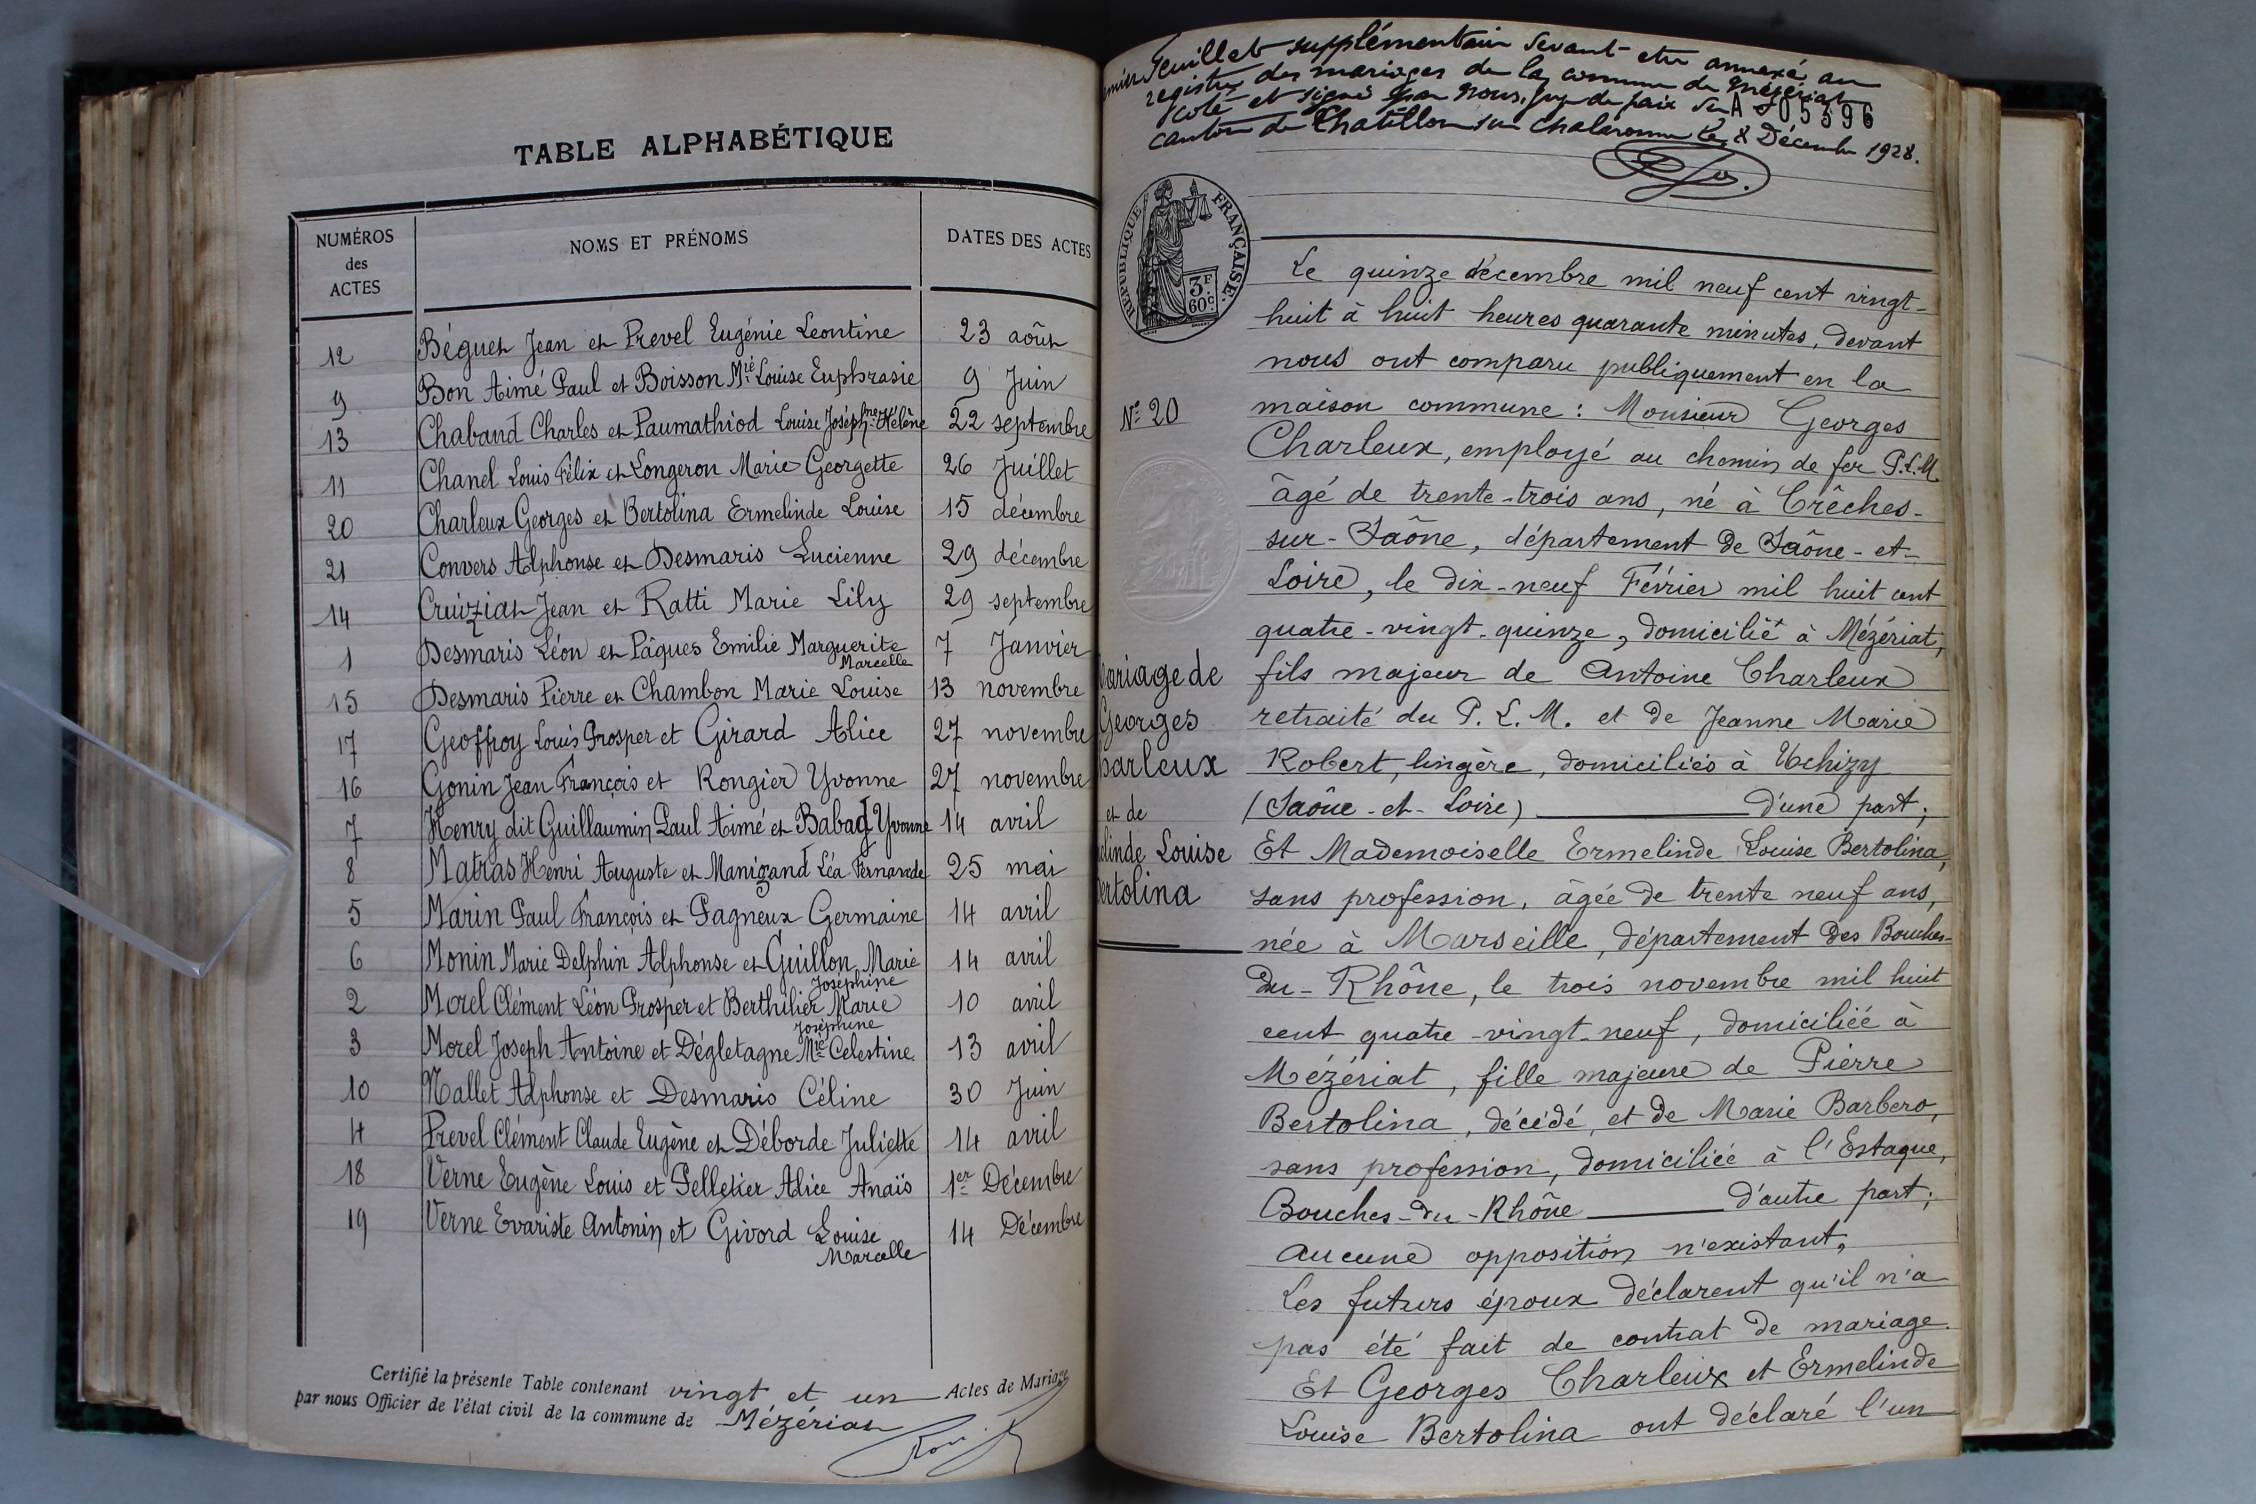 TABLE ALPHABÉTIQUE
NUMÉROS des ACTES NOMS ET PRÉNOMS DATES DES ACTES
12 Béguet Jean et Prevel Eugénie Leontine 23 août
9 Bon Aimé Paul et Boisson Mrie Louise Euphrasie 9 Juin
13 Chaband Charles et Paumathiod Louise Joséphne Hélène 22 septembre
11 Chanel Louis Félix et Longeron Marie Georgette 26 Juillet
20 Charleux Georges et Bertolina Ermelinde Louise 15 décembre
21 Convers Alphonse et Desmaris Lucienne 29 décembre
14 Cruiziat Jean et Ratti Marie Lily 29 septembre
1 Desmaris Léon et Pâques Emilie Marguerite 7 Janvier
Marcelle
15 Desmaris Pierre et Chambon Marie Louise 13 novembre
17 Geoffroy Louis Prosper et Girard Alice 27 novembre
16 Gonin Jean François et Rongier Yvonne 27 novembre
7 Henry dit Guillaumin Paul Aimé et Babad Yvonne 14 avril
8 Matras Henri Auguste et Manigand Léa Fernande 25 mai
5 Marin Paul François et Pagneux Germaine 14 avril
6 Monin Marie Delphin Alphonse et Guillon Marie 14 avril
Joséphine
2 Morel Clément Léon Prosper et Berthilier Marie 10 avril
Joséphine
3 Morel Joseph Antoine et Dégletagne Mie Celestine 13 avril
10 Nallet Alphonse et Desmaris Céline 30 Juin
4 Prevel Clément Claude Eugène et Déborde Juliette 14 avril
18 Verne Eugène Louis et Pelletier Alice Anaïs 1er Décembre
19 Verne Evariste Antonin et Givord Louise 14 Décembre
Marcelle
Certifié la présente Table contenant vingt et un Actes de Mariage
par nous Officier de l'état civil de la commune de Mézériat
Feuillet supplémentaire devant etre annexé au
registre des mariages de la commune de Mézériat
coté et signé par nous, juge de paix du A 05396
canton de Chatillon sur Chalaronne le 8 Décembre 1928.
RÉPUBLIQUE FRANÇAISE.
3F
60c
Le quinze décembre mil neuf cent vingt-
huit à huit heures quarante minutes, devant
nous ont comparu publiquement en la
No 20 maison commune : Monsieur Georges
Charleux, employé au chemin de fer P.L.M.
âgé de trente-trois ans, né à Crêches-
sur-Saône, département de Saône-et-
Loire, le dix-neuf Février mil huit cent
quatre-vingt-quinze, domicilié à Mézériat,
ariage de fils majeur de Antoine Charleux
Georges retraité du P. L. M. et de Jeanne Marie
harleux Robert, lingère, domiciliés à Uchizy
et de (Saône-et-Loire) d'une part;
elinde Louise Et Mademoiselle Ermelinde Louise Bertolina,
ertolina sans profession, âgée de trente neuf ans,
née à Marseille, département des Bouches-
du-Rhône, le trois novembre mil huit
cent quatre-vingt-neuf, domiciliée à
Mézériat, fille majeure de Pierre
Bertolina, décédé, et de Marie Barbero,
sans profession, domiciliée à l'Estaque,
Bouches-du-Rhône d'autre part;
aucune opposition n'existant,
Les futurs époux déclarent qu'il n'a
pas été fait de contrat de mariage.
Et Georges Charleux et Ermelinde
Louise Bertolina ont déclaré l'un